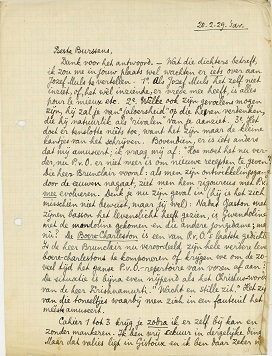 20.2.29. Jan.
Beste Burssens,
Dank voor het antwoord. — Wat die dichters betreft,
ik zou me in jouw plaats wel wachten er iets over aan
Jozef Muls te vertellen. 1° Als Jozef Muls het zelf niet
inziet, of, het wel inziende, er vrede mee heeft, is alles
pour le mieux etc. 2° Welke ook zijn gevoelens mogen
zijn, hij zal je van "jaloersheid" op die heren verdenken,
die hij natuurlik als rivalen van je aanziet. 3° Het
doet er tenslotte niets toe, want het zijn maar de kleine
kantjes van het schrijven. Bovendien, er is iets anders
dat mij amuseert; ik vraag mij af: "Hoe moet het nu ver-
der, nu P.v.O. er niet meer is om nieuwe recepten te geven?"
die heer Brunclair vooral: als men zijn ontwikkelingsgang
door de eeuwen nagaat, ziet men hem rigoureus met P.v.O.
mee evolueren. Denk je nu zijn geval in (hij is het zich
misschien niet bewust, maar zij wel). Nadat Gaston met
zijnen bason het levenslicht heeft gezien, is Gwendoline
met de mandoline gekomen en die andere zongedame, en
nu? de Boere-Charleston is een van P.v.O.'s laatste gedichten.
Is de heer Brunclair nu veroordeeld zijn hele verdere leven
boere-charlestons te komponeren of krijgen we om de zo-
veel tijd het ganse P.v.O.-repertorium van voren af aan?
die situatie is bijna even nijpend als het Krishna-voorval
van de heer Krishnamurti. "Wicht en stille zit." Het zijn
van die toneeltjes waarbij men zich in een fauteuil het
meest amuseert.
Cahier 1 tot 3 krijg je zodra ik er zelf bij kan en
zonder mankeren. Ik ben vrij secuur in dergelijke dingen.
Maar dat valies ligt in Gistoux en ik ben daar zeker in